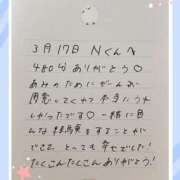 3月17日 Nくんへ
480分ありがとう♡
あみのためにがんばお
用意してくれて本当にうれ
しかったです♡ 一緒に色
んな経験をすることが
できて、とっても幸せでした!
たくさんたくさんありがとう!